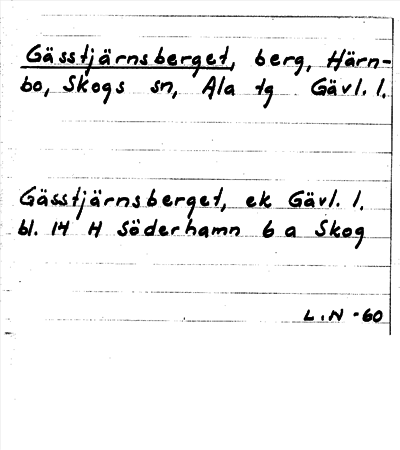 Gässtjärnsberget, berg, Härn-
bo, Skogs sn, Ala tg Gävl. l.
Gässtjärnsberget, ek Gävl. l.
bl. 14 H Söderhamn 6 a Skog
L.N -60